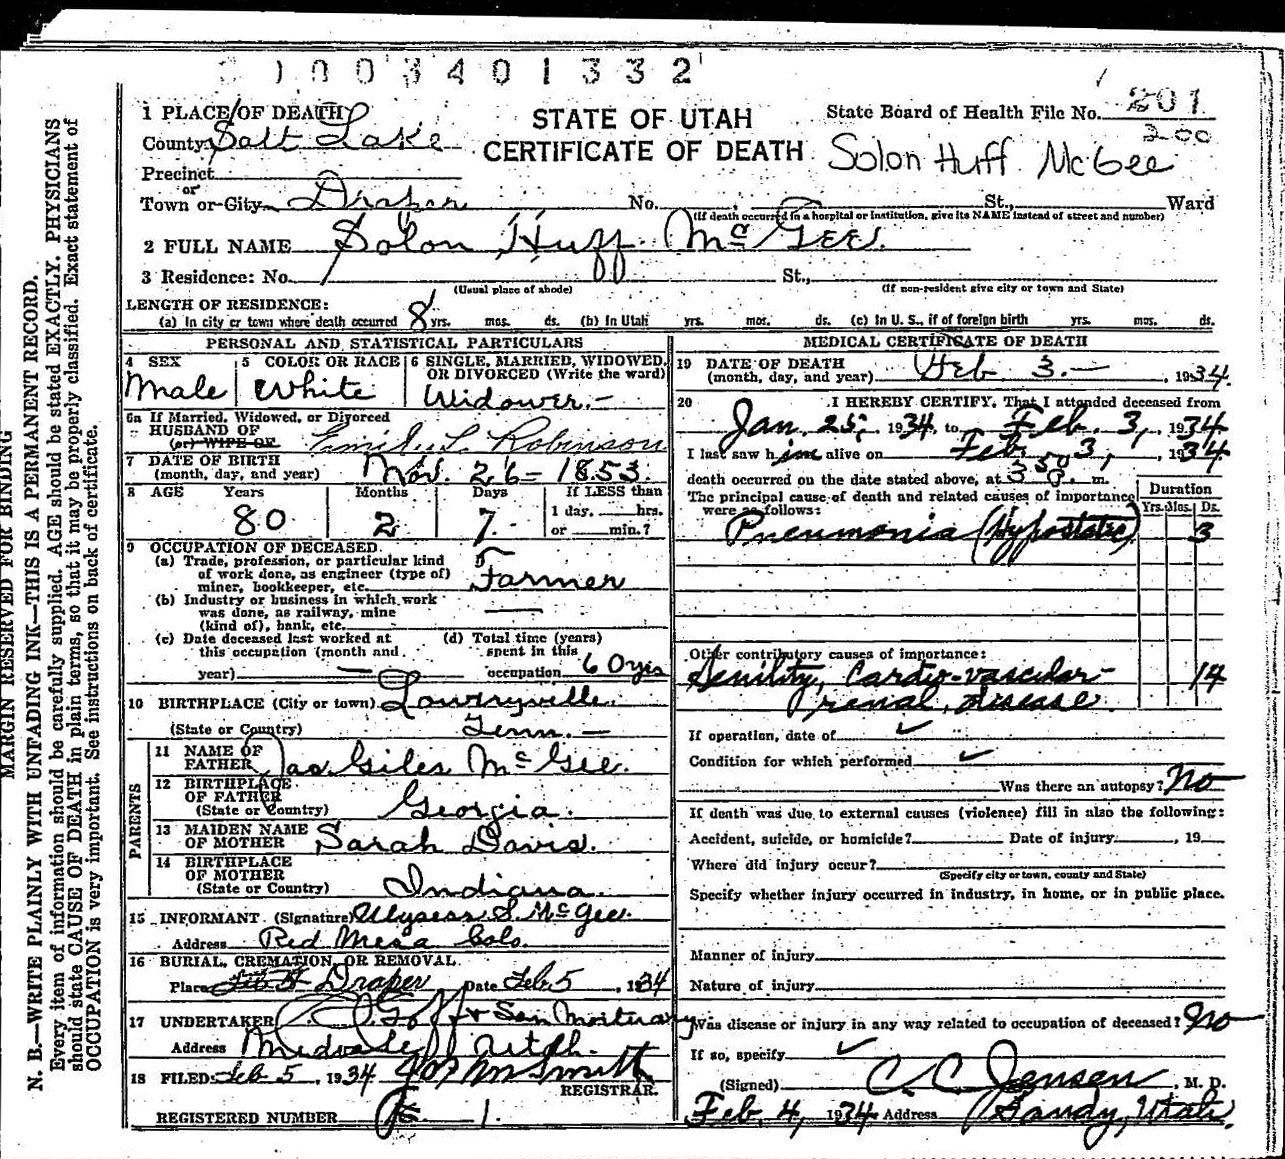 1003401332
1 PLACE OF DEATH
STATE OF UTAH
State Board of Health File No. 201
County Salt Lake
200
CERTIFICATE OF DEATH
Solon Huff McGee
Precinct
or
Town or City Draper No. St., Ward
(If death occurred in a hospital or institution, give its NAME instead of street and number)
2 FULL NAME Solon Huff McGee.
3 Residence: No. St.,
(Usual place of abode) (If non-resident give city or town and State)
LENGTH OF RESIDENCE:
(a) In city or town where death occurred 8 yrs. mos. ds. (b) In Utah yrs. mos. ds. (c) In U. S., if of foreign birth yrs. mos. ds.
PERSONAL AND STATISTICAL PARTICULARS
4 SEX
Male
5 COLOR OR RACE
White
6 SINGLE, MARRIED, WIDOWED, OR DIVORCED (Write the word)
Widower.-
6a If Married, Widowed, or Divorced
HUSBAND OF
(or) WIFE OF Emily L Robinson
7 DATE OF BIRTH
(month, day, and year) Nov. 26 - 1853.
8 AGE Years Months Days If LESS than
80 2 7. 1 day, hrs.
or min.?
9 OCCUPATION OF DECEASED.
(a) Trade, profession, or particular kind
of work done, as engineer (type of)
miner, bookkeeper, etc. Farmer
(b) Industry or business in which work
was done, as railway, mine
(kind of), bank, etc.
(c) Date deceased last worked at
this occupation (month and
year)
(d) Total time (years)
spent in this
occupation 60 yrs
10 BIRTHPLACE (City or town) Lowryville.
(State or Country) Tenn. -
PARENTS
11 NAME OF
FATHER Jas. Giles McGee.
12 BIRTHPLACE
OF FATHER
(State or Country) Georgia.
13 MAIDEN NAME
OF MOTHER Sarah Davis.
14 BIRTHPLACE
OF MOTHER
(State or Country) Indiana.
15 INFORMANT (Signature) Ulysess S. McGee.
Address Red Mesa Colo.
16 BURIAL, CREMATION, OR REMOVAL
Place Draper Date Feb 5, 1934
17 UNDERTAKER Goff & Son Mortuary
Address Midvale Utah.
18 FILED Feb 5, 1934 Smith
REGISTRAR.
REGISTERED NUMBER 1.
MEDICAL CERTIFICATE OF DEATH
19 DATE OF DEATH
(month, day, and year) Feb 3.-, 1934.
20 I HEREBY CERTIFY, That I attended deceased from
Jan. 25, 1934, to Feb. 3, 1934
I last saw him alive on Feb 3, 1934
death occurred on the date stated above, at 3 50 P. m.
The principal cause of death and related causes of importance
were as follows:
Duration
Yrs. Mos. Ds.
Pneumonia (Hypostatic) 3
Other contributory causes of importance:
Senility, Cardio-vascular- 14
renal disease.
If operation, date of
Condition for which performed
Was there an autopsy? No
If death was due to external causes (violence) fill in also the following:
Accident, suicide, or homicide? Date of injury , 19
Where did injury occur?
(Specify city or town, county and State)
Specify whether injury occurred in industry, in home, or in public place.
Manner of injury
Nature of injury
Was disease or injury in any way related to occupation of deceased? No
If so, specify
(Signed) C. C. Jensen, M. D.
Feb. 4, 1934 Address Sandy, Utah.
MARGIN RESERVED FOR BINDING
N. B.—WRITE PLAINLY WITH UNFADING INK—THIS IS A PERMANENT RECORD.
Every item of information should be carefully supplied. AGE should be stated EXACTLY. PHYSICIANS
should state CAUSE OF DEATH in plain terms, so that it may be properly classified. Exact statement of
OCCUPATION is very important. See instructions on back of certificate.